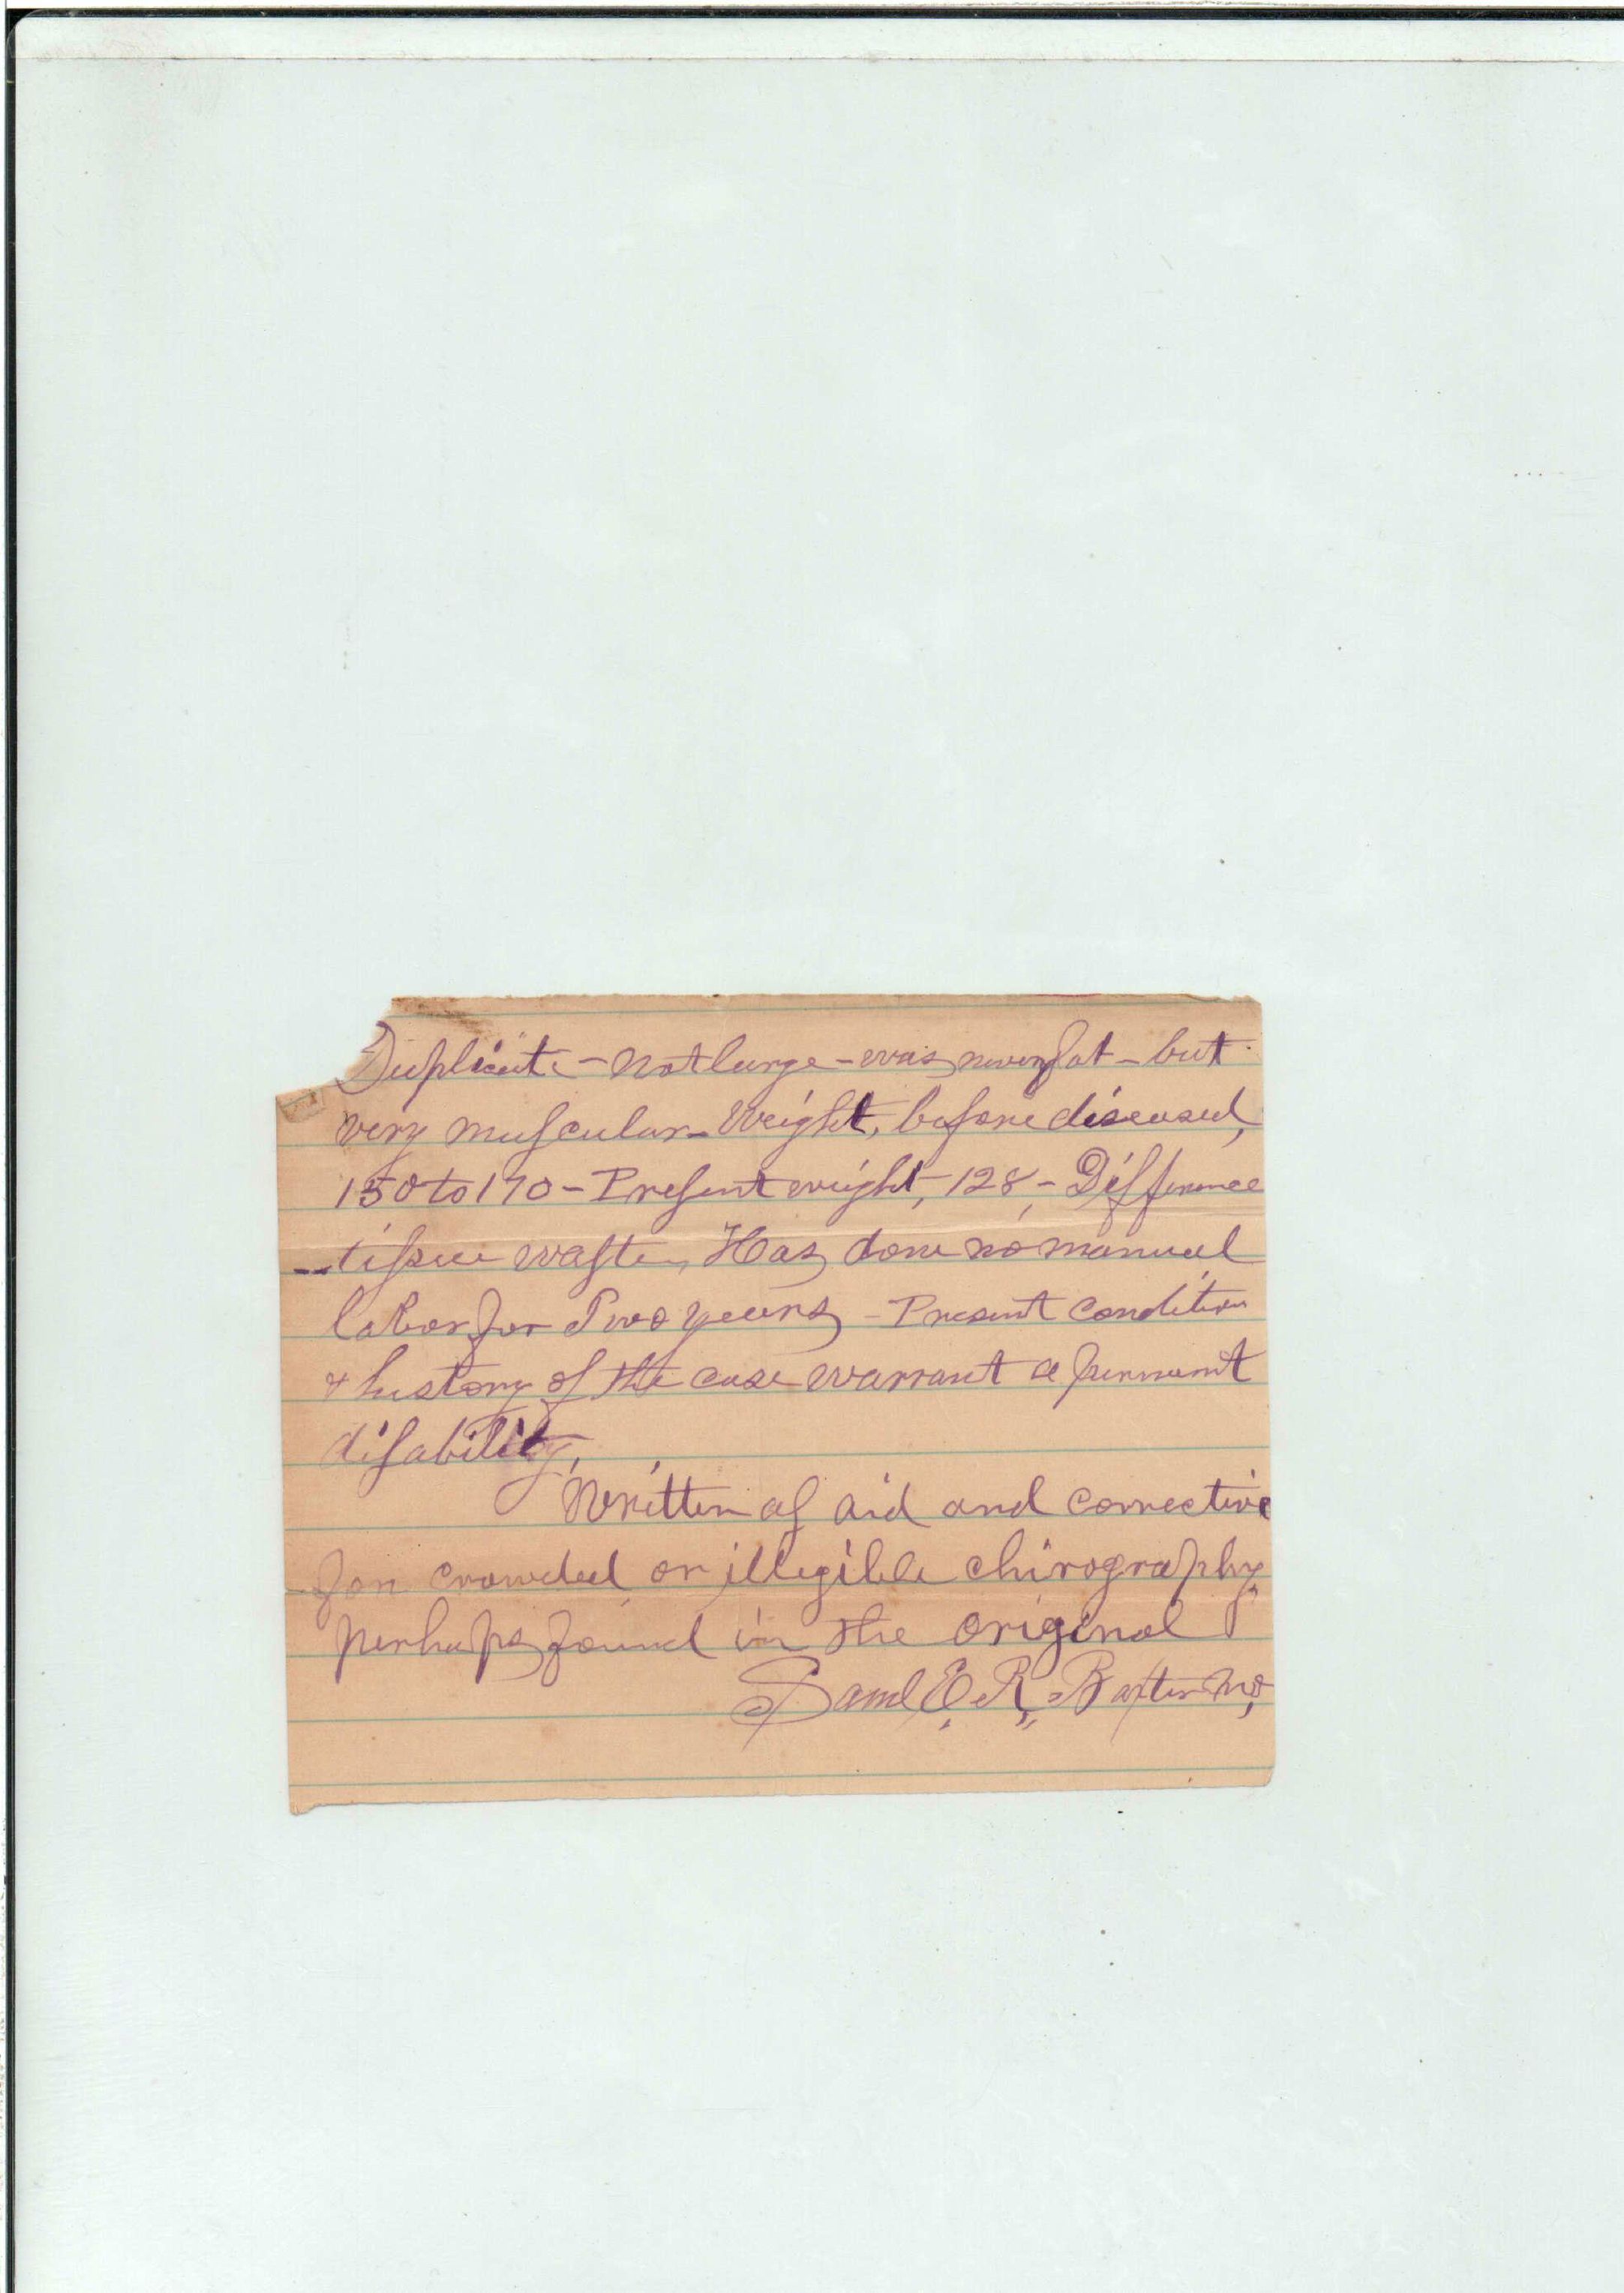 Duplicate - Not large - was never fat - but
very muscular - Weight, before diseased,
150 to 170 - Present weight, 128, - Difference
-- tissue waste, Has done no manual
labor for Two years - Present condition
& history of the case warrant a permanent
disability,
Written as aid and corrective
for crowded or illegible chirography
perhaps found in the original
Saml E. R. Baxter MD,